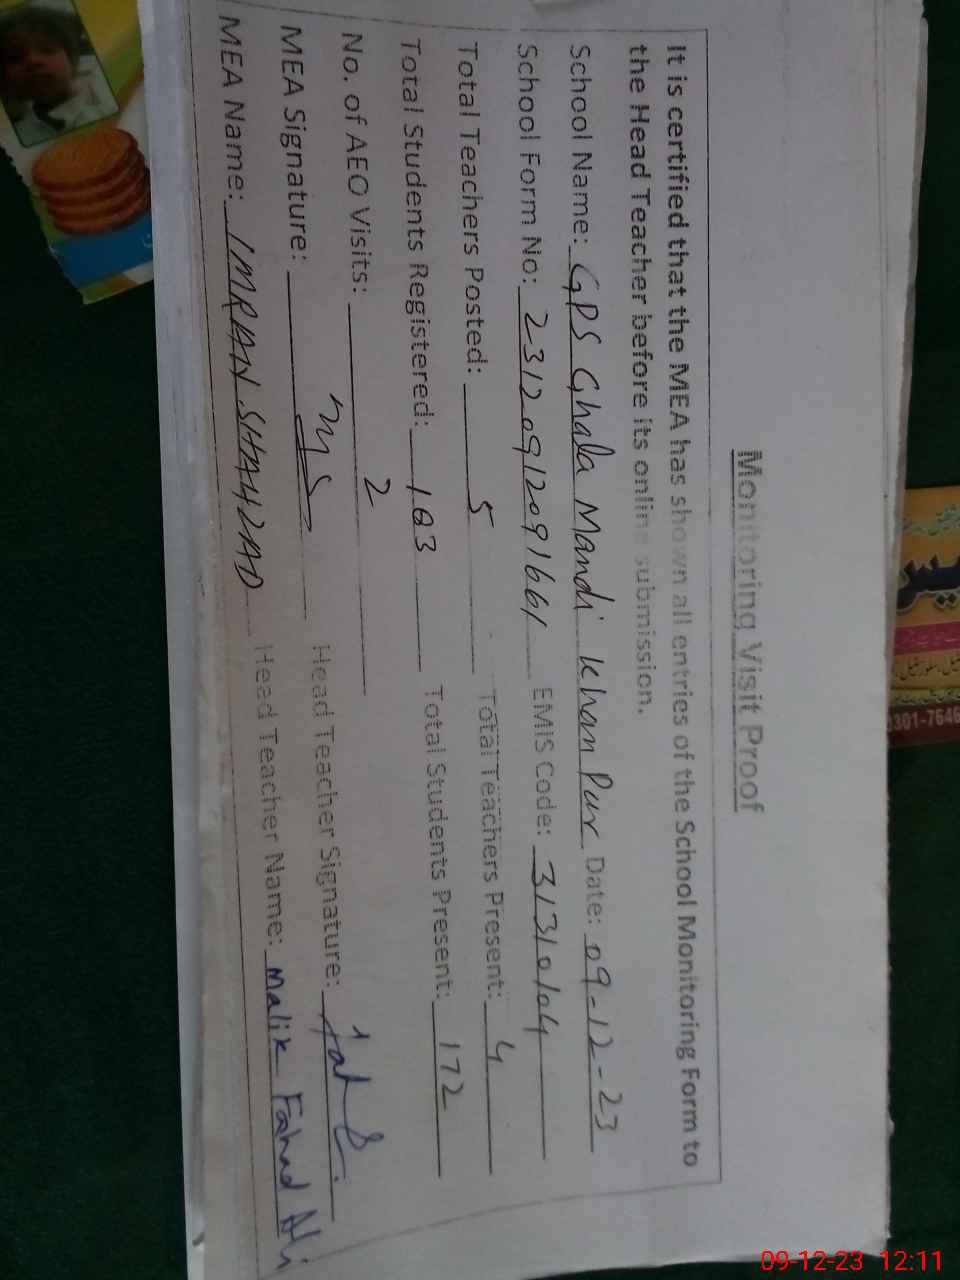 Monitoring Visit Proof
It is certified that the MEA has shown all entries of the School Monitoring Form to
the Head Teacher before its online submission.
School Name: GPS Ghala Mandi Khan Pur Date: 09-12-23
School Form No: 23120912091661 EMIS Code: 31310104
Total Teachers Posted: 5 Total Teachers Present: 4
Total Students Registered: 183 Total Students Present: 172
No. of AEO Visits: 2
MEA Signature: Head Teacher Signature:
MEA Name: IMRAN SHAHZAD Head Teacher Name: Malik Fahad Ali
0301-7646
09-12-23 12:11